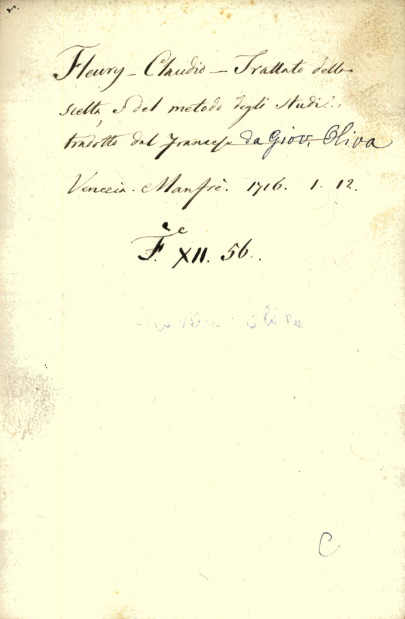 Fleury - Claudio - Trattato della
scelta, e del metodo degli studi
tradotto dal francese da Giov. Oliva
Venezia. Manfrè. 1716. 1. 12.
F. XII. 56.
Oliva
C